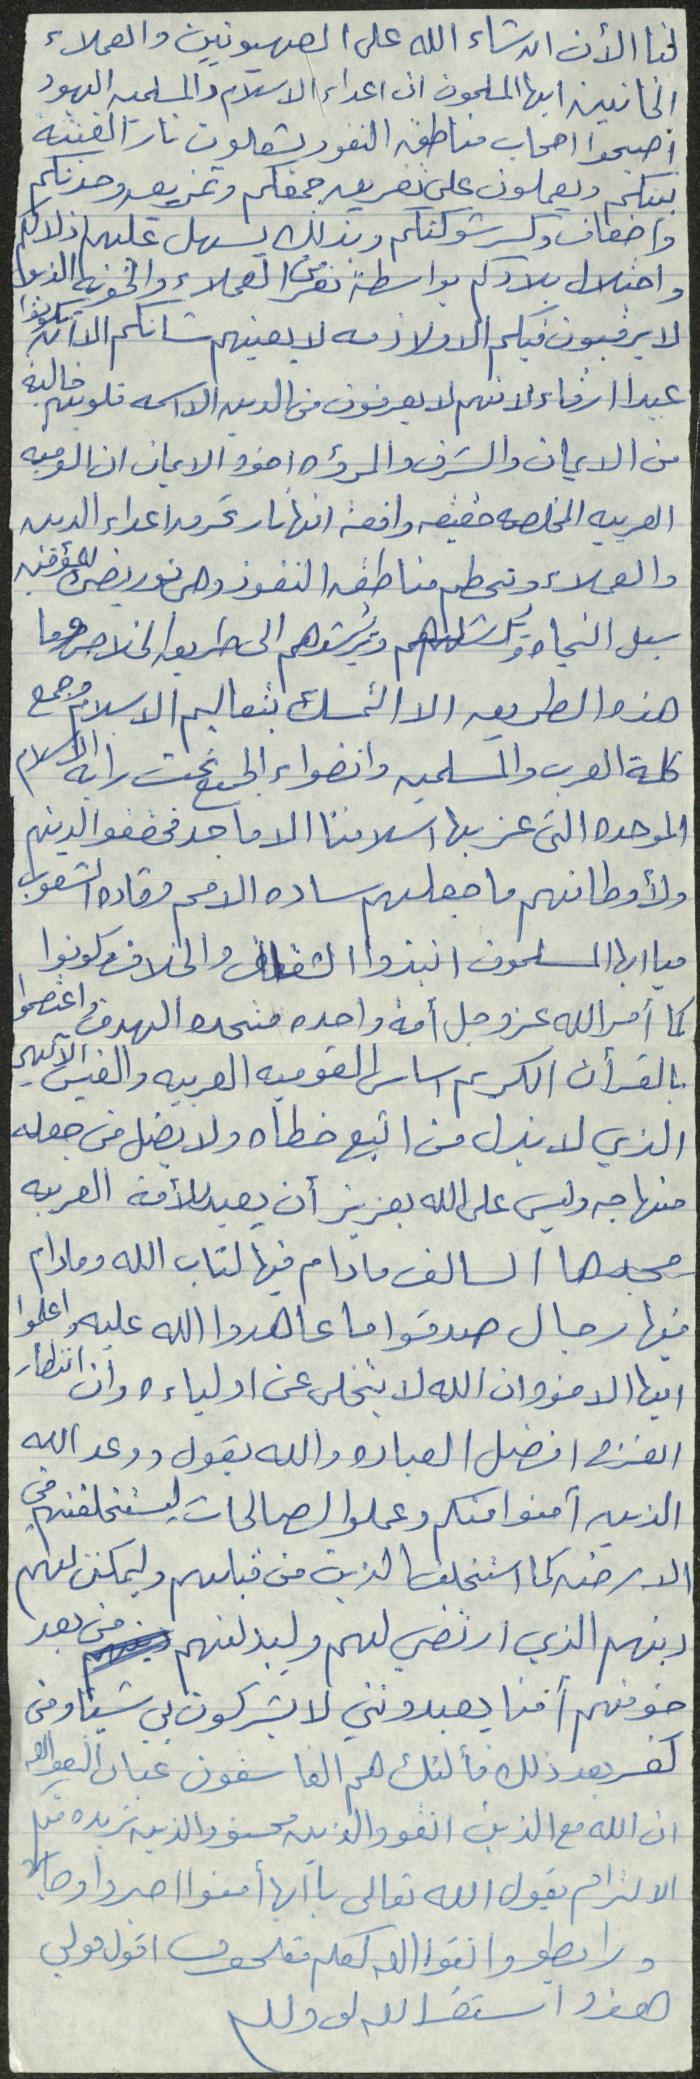 لنا الأن ان شاء الله على الصهيونيين والعملاء
الخائنين ايها المسلمون ان اعداء الاسلام والمسلمين اليهود
أصبحوا اصحاب مناطق النفوذ يشعلون نار الفتنة
بينكم ويعملون على تفريق جمعكم وتمزيق وحدتكم
واضعاف وكسر شوكتكم وبذلك يسهل عليهم اذلالكم
واحتلال بلادكم بواسطة نفر من العملاء والخونه الذين
لا يرقبون فيكم الا ولا ذمه لا يعنيهم شانكم الا ان تكونوا
عبيدا ارقاء لانهم لا يعرفون من الدين الا اسمه قلوبهم خاليه
من الايمان والشرف والمروءه اخوه الايمان ان القوميه
العربيه المخلصه حقيقه واقعة انها نار تحرق اعداء الدين
والعملاء وتحطم مناطق النفوذ وهي نور يضيء للمؤمنين
سبل النجاه ويرشدهم الى طريق الخلاص وما
هذه الطريق الا التمسك بتعاليم الاسلام وجمع
كلمة العرب والمسلمين وانضواء الجميع تحت راية الاسلام
الموحده التي عز بها اسلافنا الاماجد فحققوا لدينهم
ولأوطانهم ما جعلهم ساده الامم وقاده الشعوب
فيا ايها المسلمون انبذوا الشقاق والخلاف وكونوا
كما أمر الله عز وجل أمة واحده متحده الهدف واعتصموا
بالقرأن الكريم اساس القوميه العربيه والقبس الآلهي
الذي لا يذل من اتبع خطاه ولا يضل من جعله
منهاجه وليس على الله بعزيز أن يعيد للأمة العربيه
مجدها السالف مادام فيها كتاب الله ومادام
فيها رجال صدقوا ما عاهدوا الله عليه واعلموا
ايها الاخوه ان الله لا يتخلى عن اولياءه وان انتظار
الفرج افضل العباده والله يقول ووعد الله
الذين آمنوا منكم وعملوا الصالحات ليستخلفنهم في
الارض كما استخلف الذين من قبلهم وليمكنن لهم
دينهم الذي ارتضى لهم وليبدلنهم من بعد
خوفهم أمنا يعبدونني لا يشركون بي شيئا ومن
كفر بعد ذلك فألئك هم الفاسقون عباد الله اتقوا الله
ان الله مع الذين اتقوا والذين هم محسنون والذي نريده منكم
الالتزام بقول الله تعالى يا أيها أمنوا اصبروا وصابروا
ورابطو واتقوا الله لعلكم تفلحون اقول قولي
هذا واستغفر الله لي ولكم